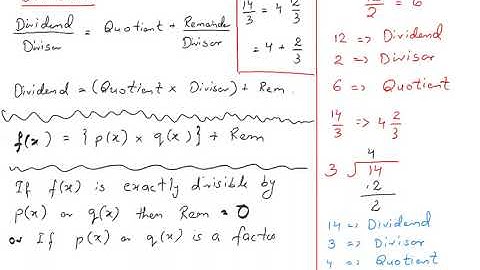 Dividend / Divisor = Quotient + Remainde / Divisor
Dividend = (Quotient × Divisor) + Rem.
f(x) = { p(x) × q(x)} + Rem
If f(x) is exactly divisible by
p(x) or q(x) then Rem = 0
or If p(x) or q(x) is a facto
14/3 = 4 2/3
= 4 + 2/3
12/2 = 6
12 => Dividend
2 => Divisor
6 => Quotient
14/3 => 4 2/3
4
3 √14
12
2
14 => Dividend
3 => Divisor
4 => Quotient